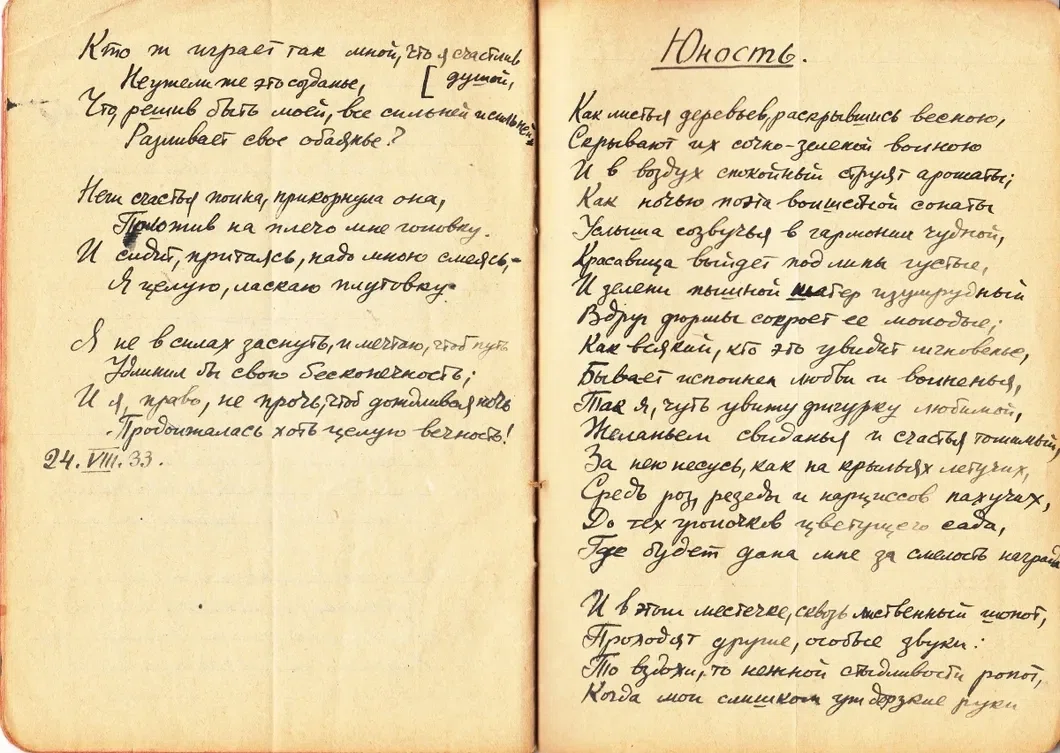 Кто ж играет так мной, что я счастлив
[душой,
Неужели же это созданье,
Что, решив быть моей, все сильней и сильней
Разливает свое обаянье?
Неги счастья полна, прикорнула она,
Приложив на плечо мне головку.
И сидит, притаясь, надо мною смеясь,-
Я целую, ласкаю плутовку.
Я не в силах заснуть, и мечтаю, чтоб путь
Удлинил бы свою бесконечность;
И я, право, не прочь, чтоб дождливая ночь
Продолжалась хоть целую вечность!
24.VIII.33.
Юность.
Как листья деревьев, раскрывшись весною,
Скрывают их сочно-зеленой волною
И в воздух спокойный струят ароматы;
Как ночью поэта волшебной сонаты
Услыша созвучья в гармонии чудной,
Красавица выйдет под липы густые,
И зелени пышной шатер изумрудный
Вдруг формы сокроет ее молодые;
Как всякий, кто это увидит мгновенье,
Бывает исполнен любви и волненья,
Так я, чуть увижу фигурку любимой,
Желаньем свиданья и счастья томимый,
За нею несусь, как на крыльях летучих,
Средь роз, резеды и нарциссов пахучих,
До тех уголочков цветущего сада,
Где будет дана мне за смелость награда
И в этом местечке, сквозь лиственный шопот,
Проходят другие, особые звуки:
То вздохи, то нежной стыдливости ропот,
Когда мои слишком уж дерзкие руки